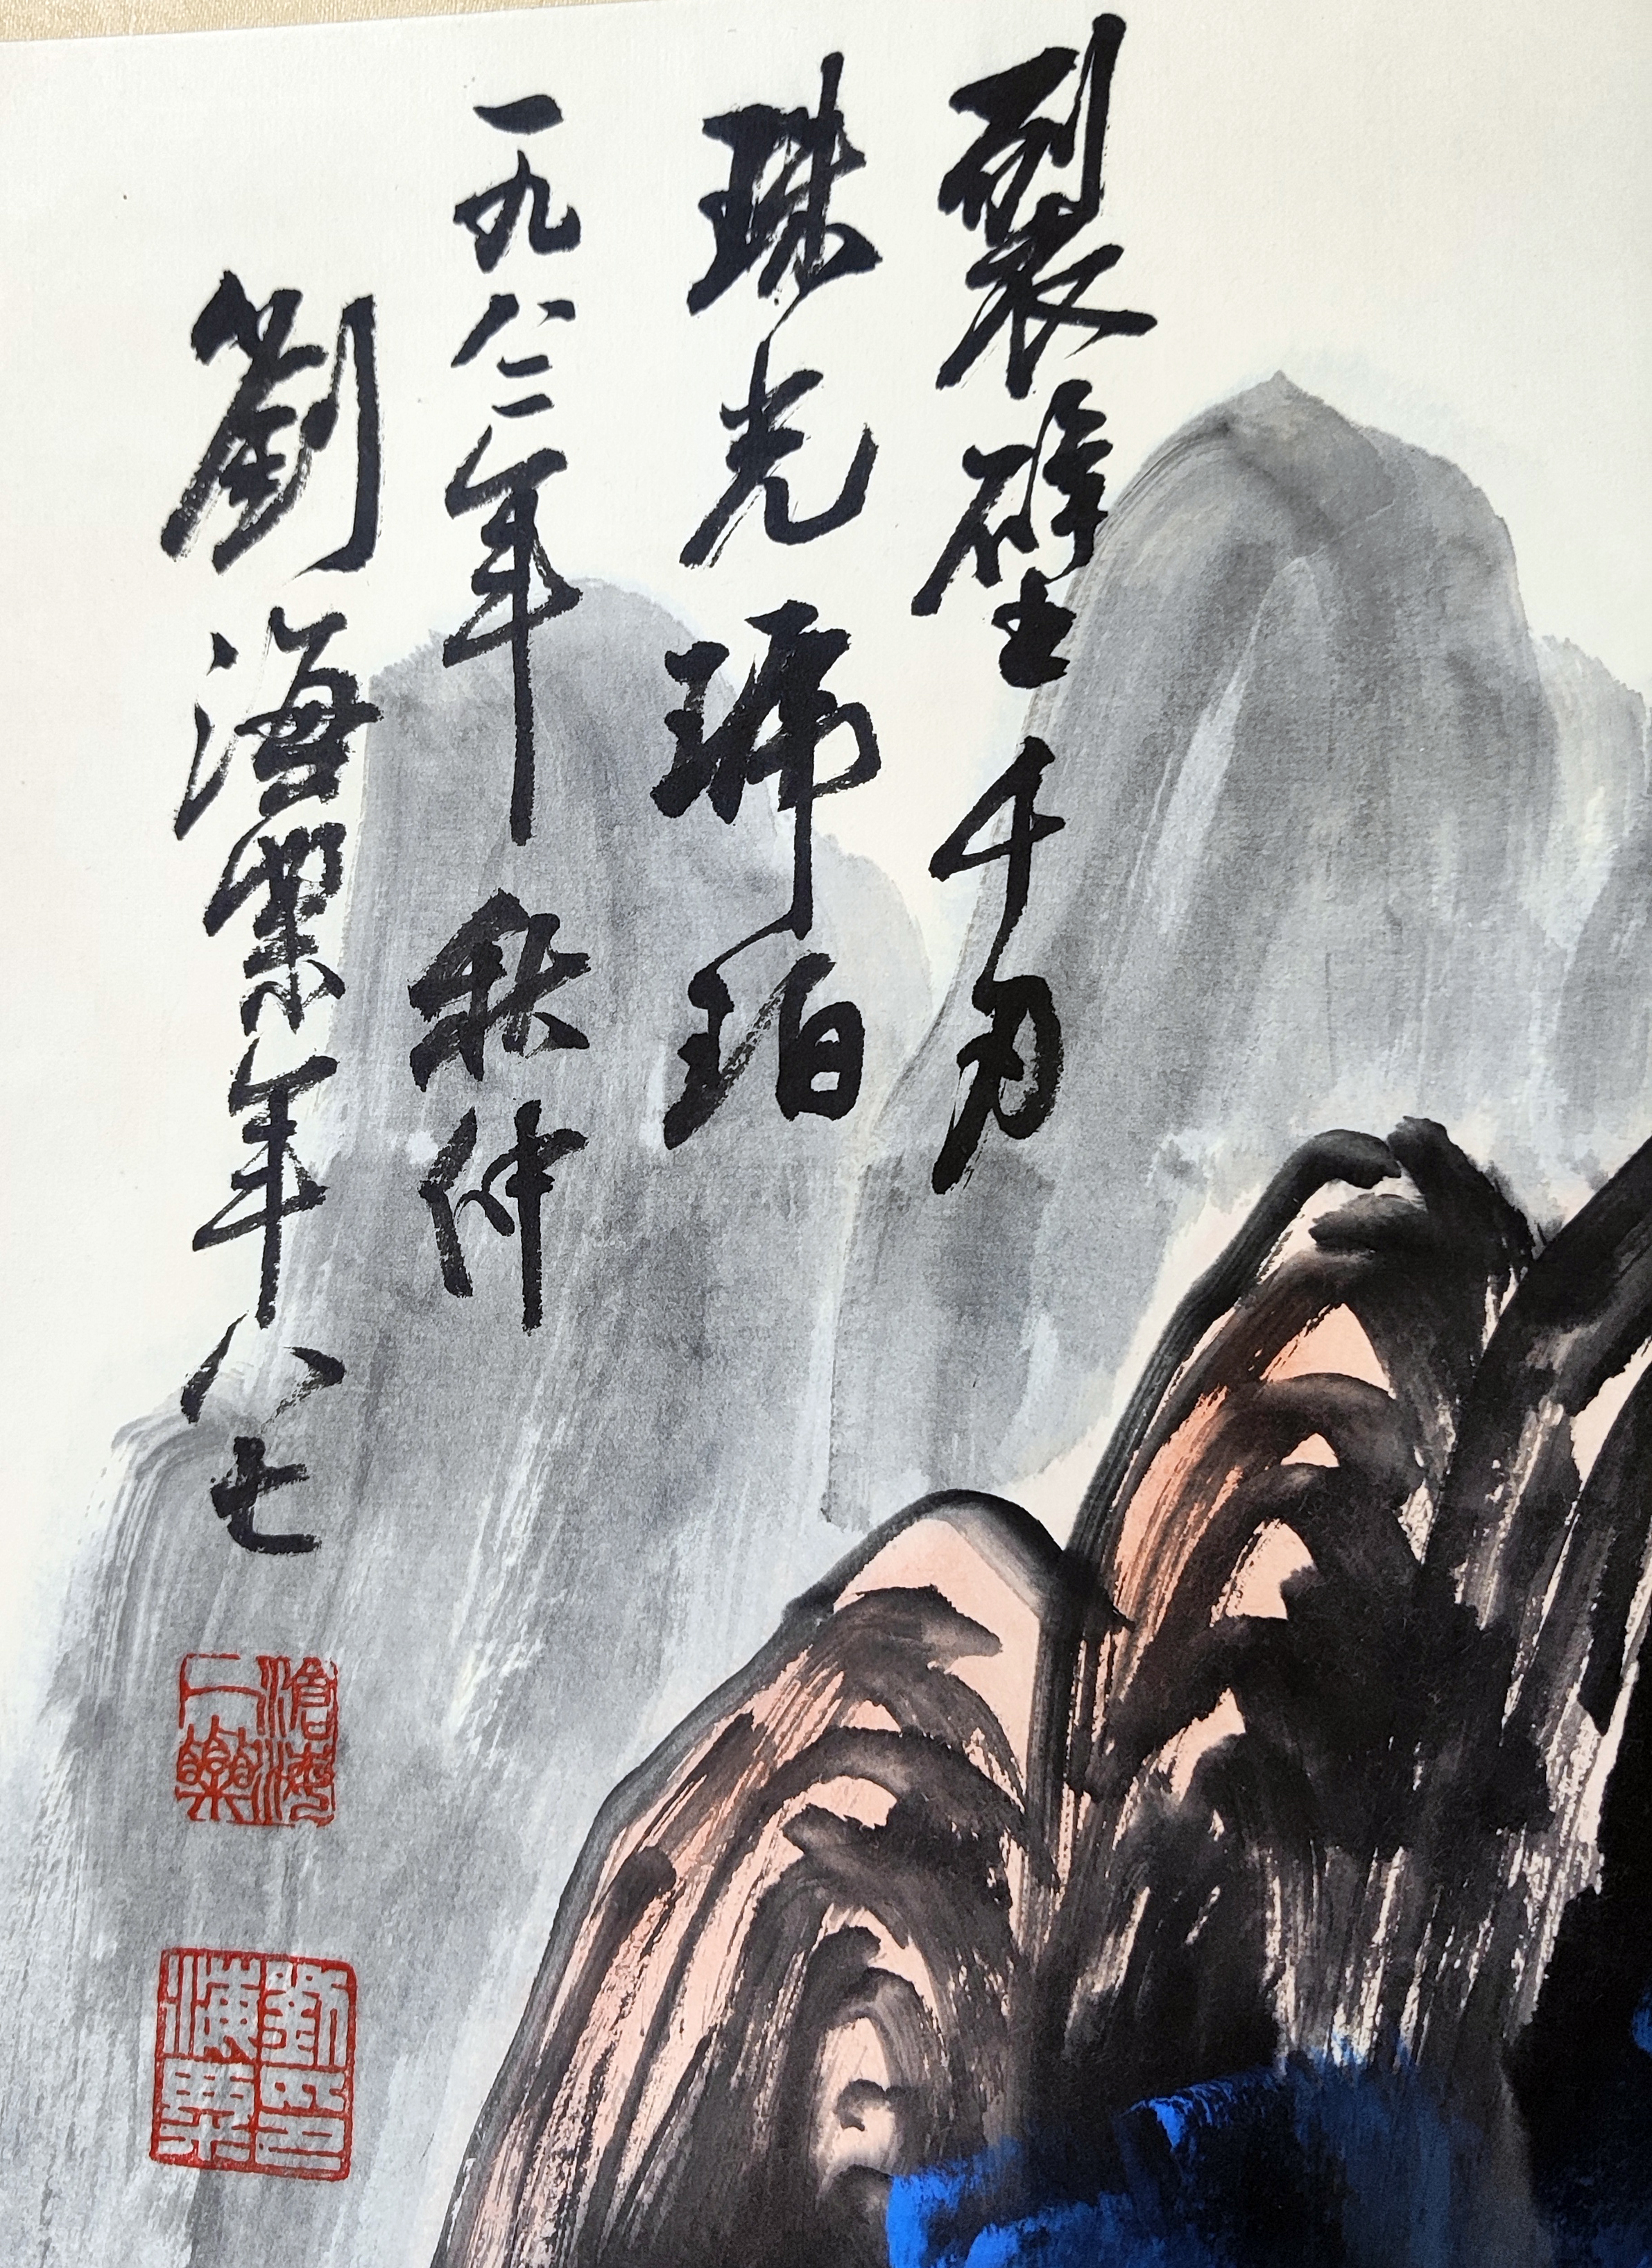 裂壁千刃
珠光琥珀
一九八二年秋仲
劉海粟年八七
滄海一粟